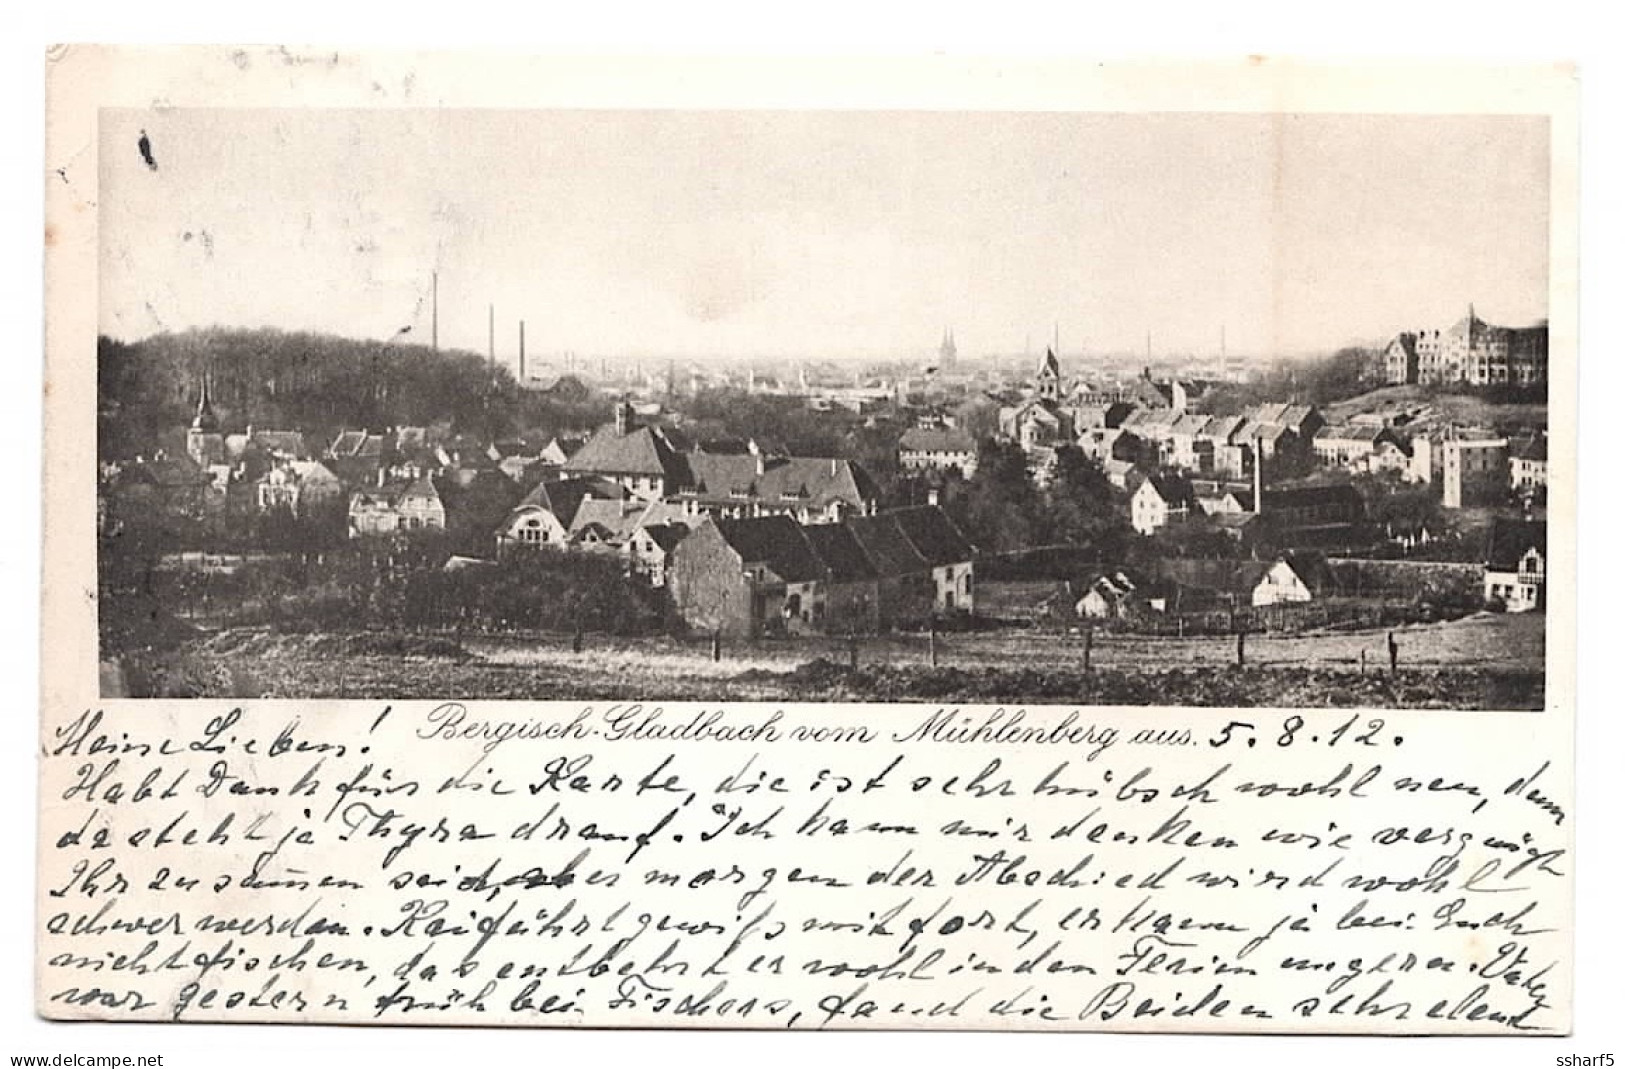 Meine Lieben! Bergisch-Gladbach vom Mühlenberg aus. 5.8.12.
Habt Dank für die Karte, die ist sehr hübsch wohl neu, denn
da steht ja Thyra drauf. Ich kann mir denken wie vergnügt
Ihr zusammen seid, aber morgen der Abschied wird wohl
schwer werden. Kai führt gewiß mit fort, er kann ja bei Euch
nicht fischen, das entbehrt er wohl in den Ferien ungern. Vater
war gestern früh bei Fischers, fand die Beiden sehr elend
www.delcampe.net ssharf5